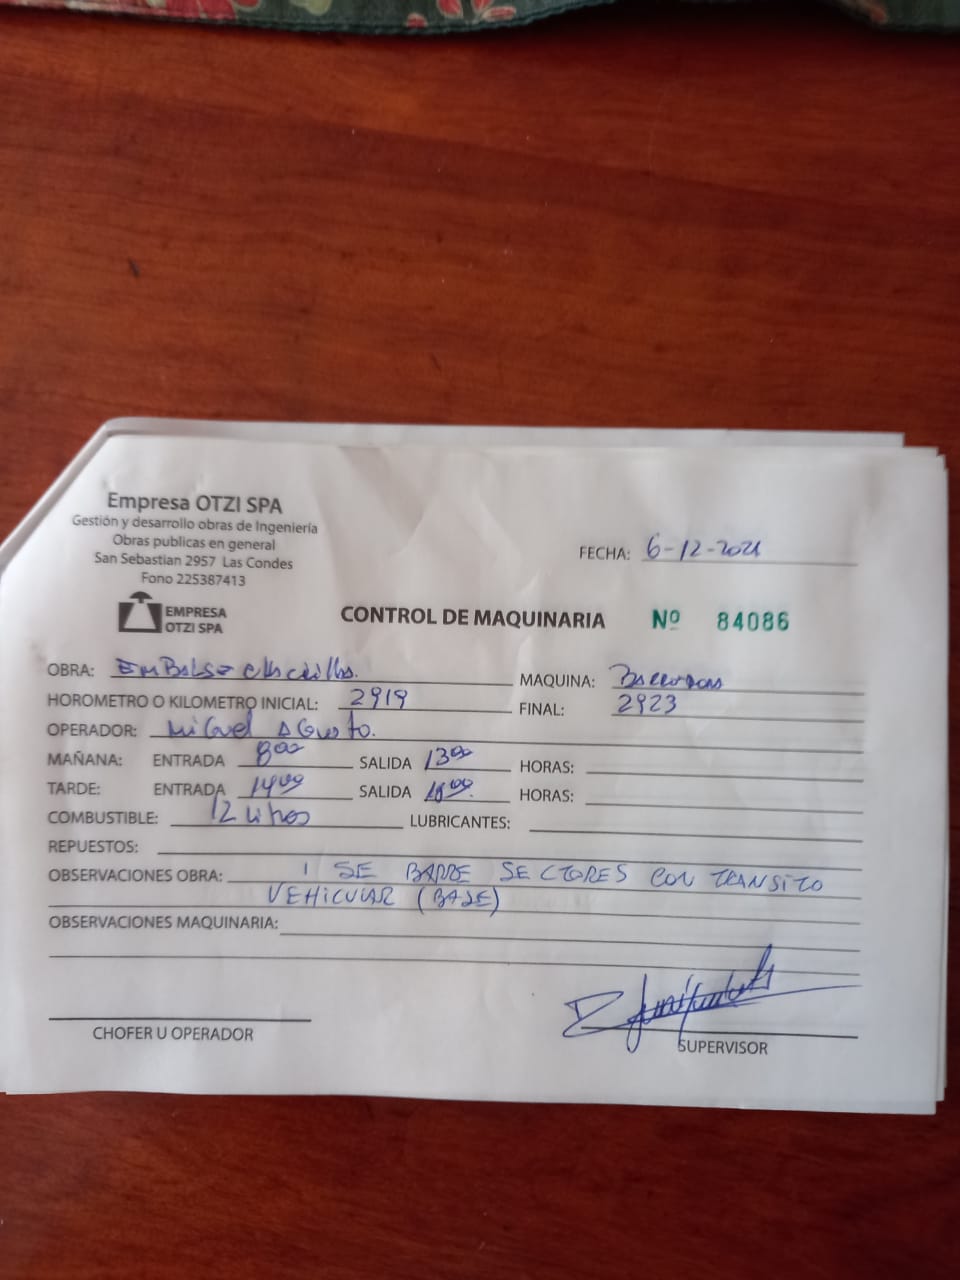 Empresa OTZI SPA
Gestión y desarrollo obras de Ingeniería
Obras publicas en general
San Sebastian 2957 Las Condes
Fono 225387413
EMPRESA
OTZI SPA
FECHA: 6-12-2021
CONTROL DE MAQUINARIA Nº 84086
OBRA: EmBalse
MAQUINA:
HOROMETRO O KILOMETRO INICIAL: 2919
FINAL: 2923
OPERADOR: Miguel Agusto.
MAÑANA: ENTRADA 8:00 SALIDA 13:00 HORAS:
TARDE: ENTRADA 14:00 SALIDA 18:00 HORAS:
COMBUSTIBLE: 12 Litros LUBRICANTES:
REPUESTOS:
OBSERVACIONES OBRA: SE BARRE SECTORES CON TRANSITO
VEHICULAR (BASE)
OBSERVACIONES MAQUINARIA:
CHOFER U OPERADOR
SUPERVISOR